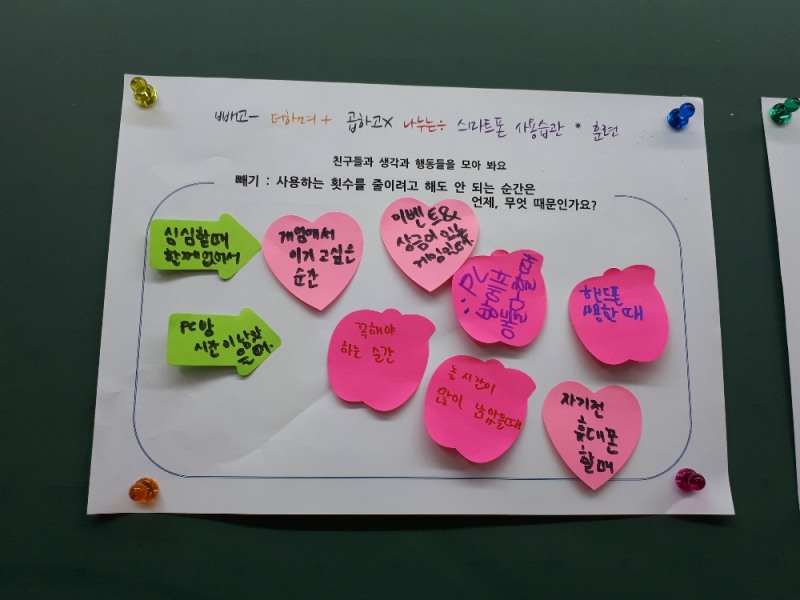 빼고- 더하며+ 곱하고× 나누는÷ 스마트폰 사용습관 * 훈련
친구들과 생각과 행동들을 모아 봐요
빼기 : 사용하는 횟수를 줄이려고 해도 안 되는 순간은
언제, 무엇 때문인가요?
심심할때
할께없어서
게임에서
이기고싶은
순간
이벤트&
상금이 있는
게임할때
PC
방에서
애들과할때
핸드폰
박한때
PC방
시간이 남았
을때.
꼭해야
하는 순간
놀시간이
많이 남았을때
자기전
휴대폰
할때